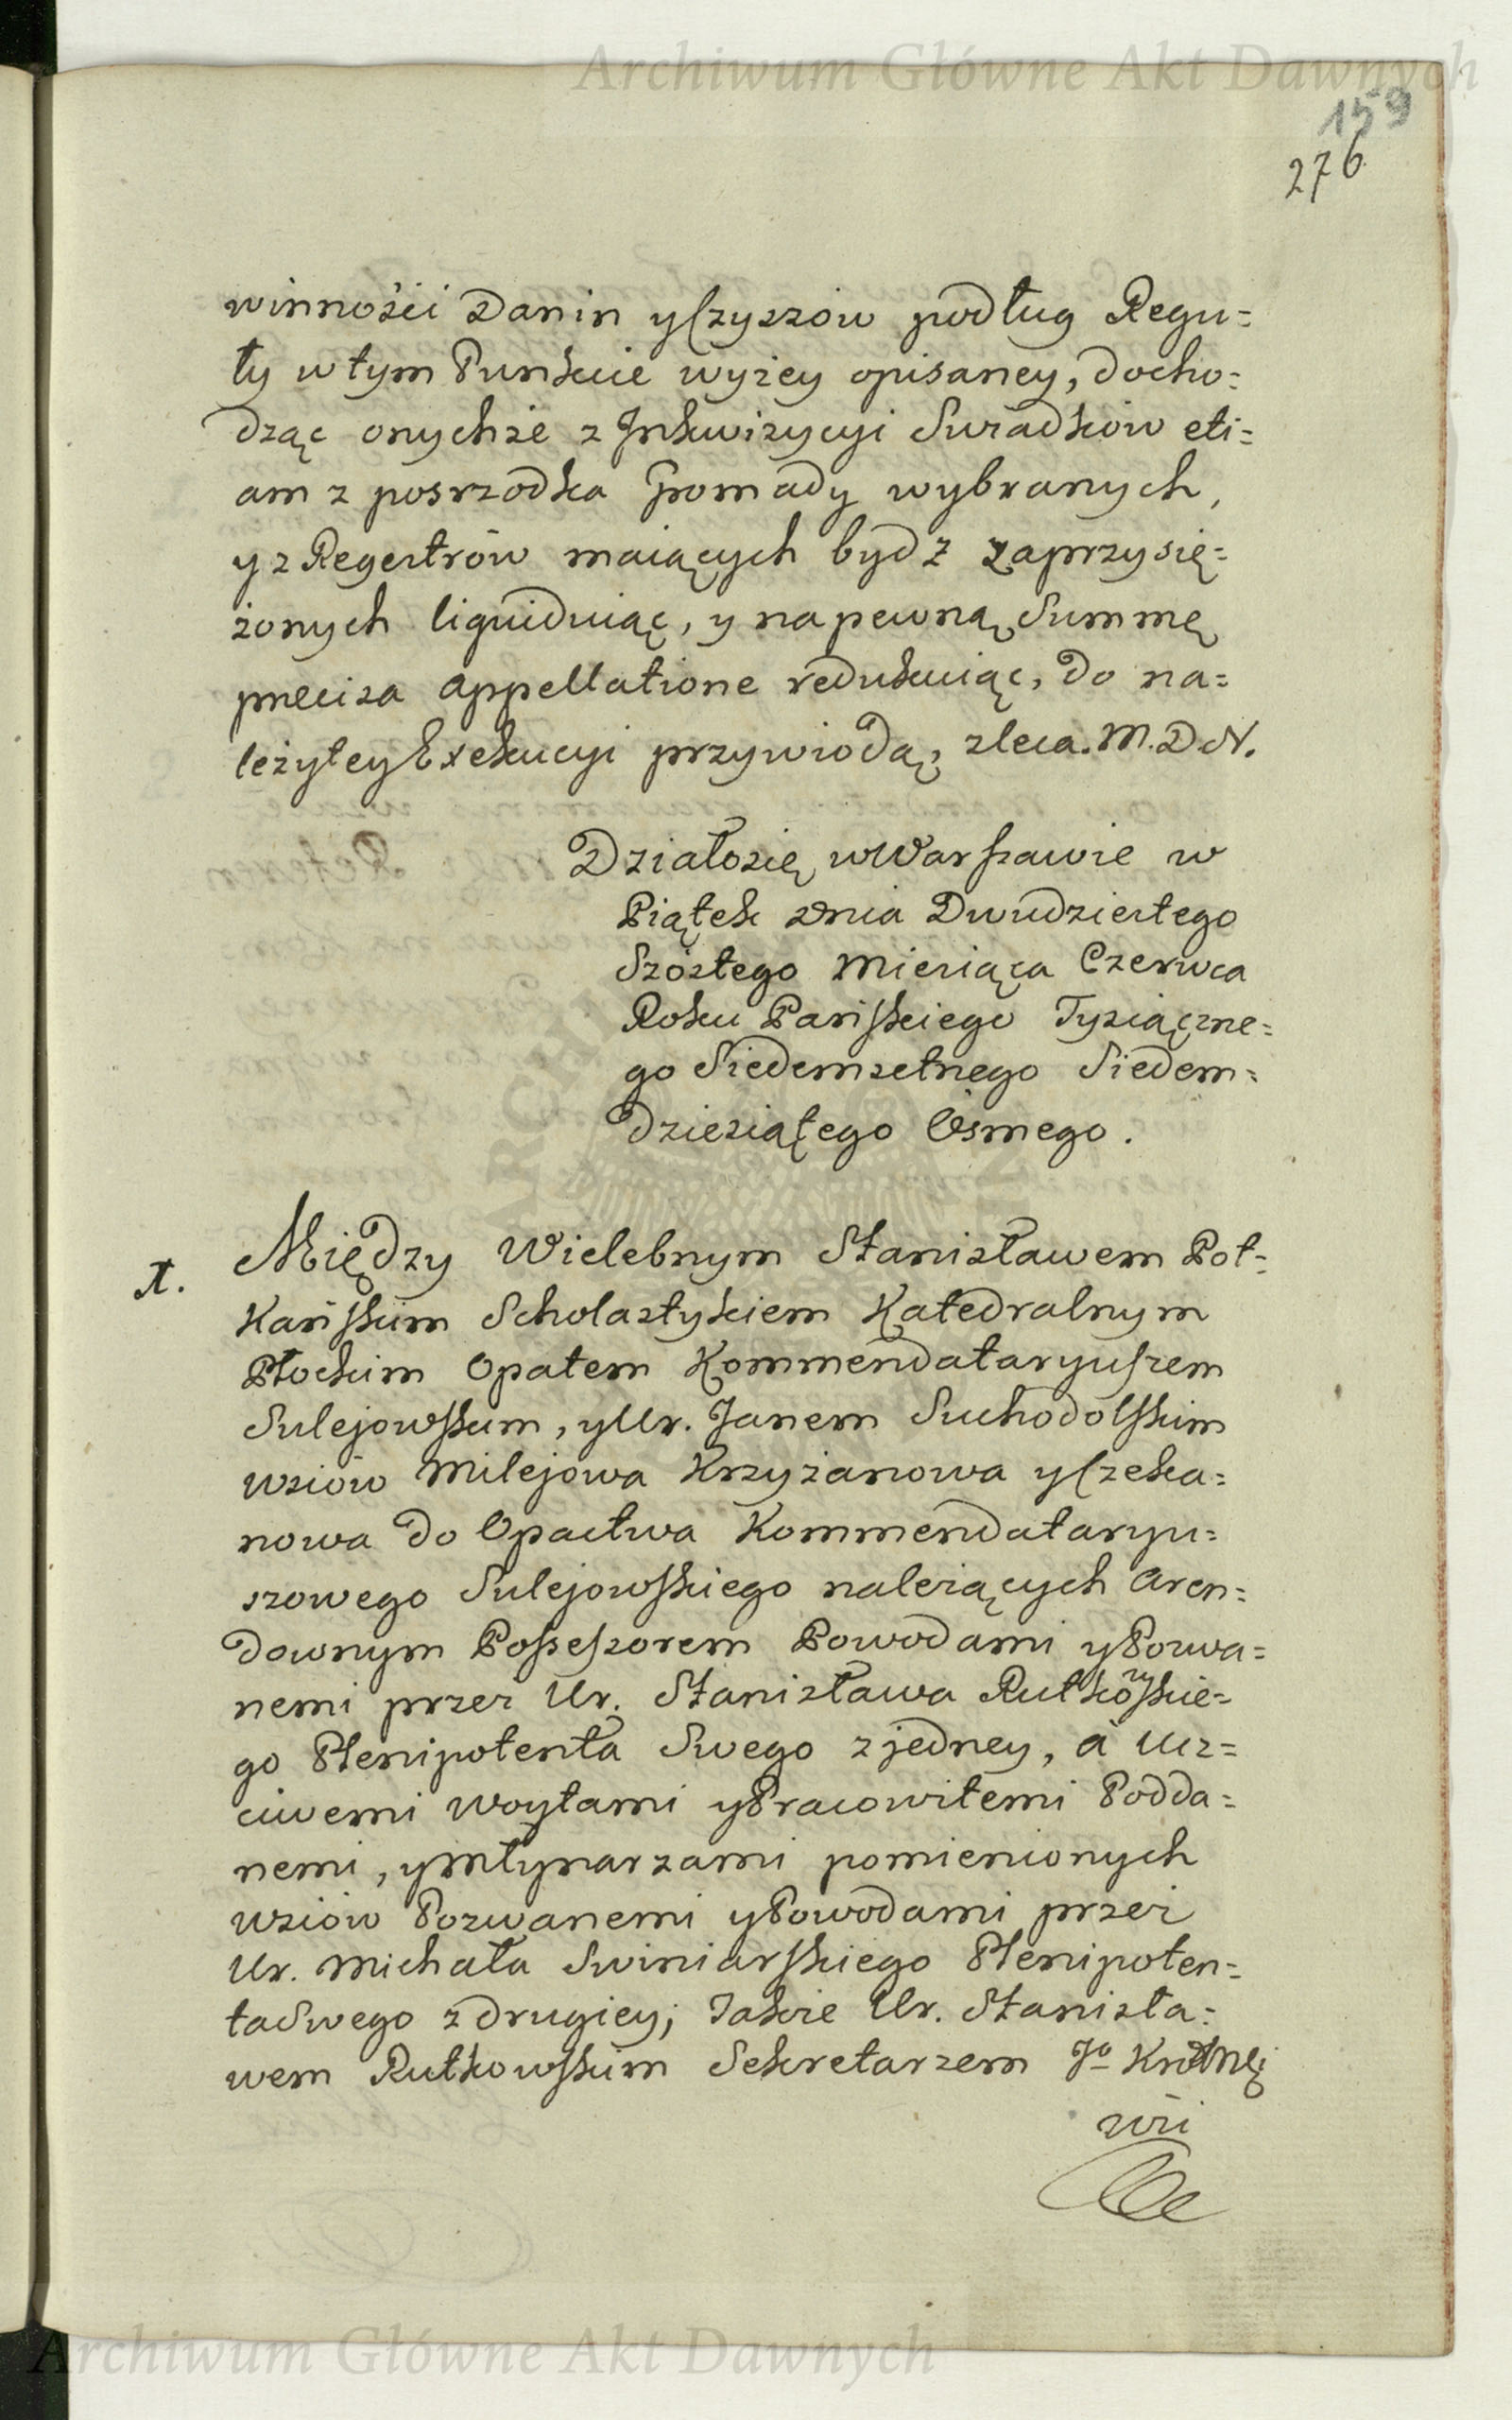 Archiwum Główne Akt Dawnych
159
276
winności Danin y Czyszów podług Regu=
ły w tym Punkcie wyżey opisaney, docho=
dząc onychże z Inkwizycyi Swiadków eti=
am z posrzodka Gromady wybranych,
y z Regestrów maiących bydź zaprzysię=
żonych liquiduiąc, y na pewną Summę
precisa appellatione redukuiąc, do na=
leżytey Exekucyi przywiodą, zleca. M.D.N.
Działo się w Warszawie w
Piątek dnia Dwudziestego
Szóstego Miesiąca Czerwca
Roku Pańskiego Tysiączne=
go Siedemsetnego Siedem=
dziesiątego Osmego.
X. Między Wielebnym Stanisławem Pot=
kańskim Scholastykiem Katedralnym
Płockim Opatem Kommendataryuszem
Sulejowskim, y Ur. Janem Suchodolskim
wsiów Milejowa Krzyżanowa y Czeka=
nowa do Opactwa Kommendataryu=
szowego Sulejowskiego należących Aren=
downym Possessorem Powodami y Pozwa=
nemi przez Ur. Stanisława Rutkowskie=
go Plenipotenta Swego z jedney, a Ucz=
ciwemi Woytami y Pracowitemi Podda=
nemi, y Młynarzami pomienionych
wsiów Pozwanemi y Powodami przez
Ur. Michała Swiniarskiego Plenipoten=
ta Swego z drugiey; Także Ur. Stanisła=
wem Rutkowskim Sekretarzem Jo Krolnei
wsi
Archiwum Główne Akt Dawnych